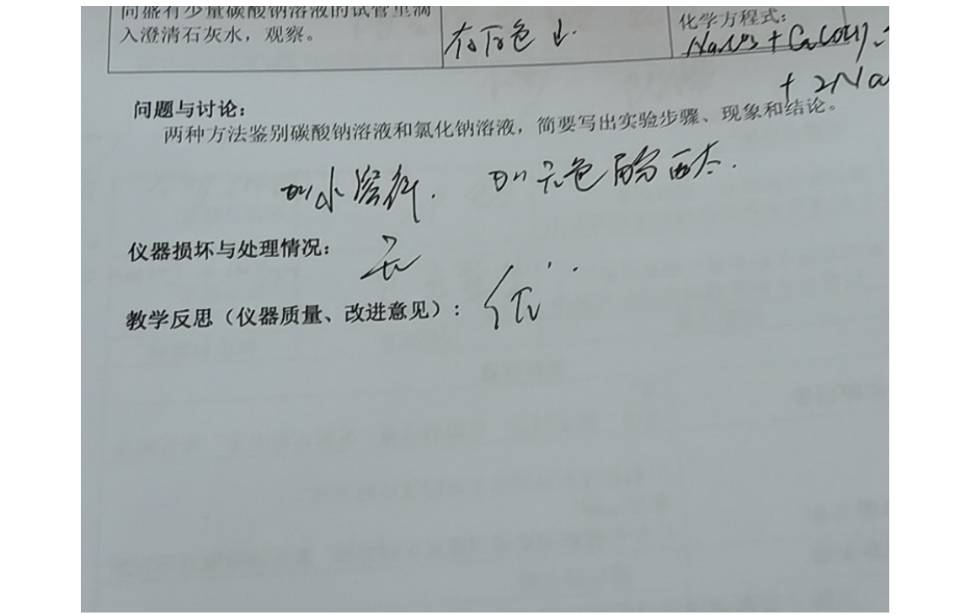 向盛有少量碳酸钠溶液的试管里滴
入澄清石灰水，观察。
有白色↓.
化学方程式：
Na2CO3 + Ca(OH)2
+ 2Na
问题与讨论：
两种方法鉴别碳酸钠溶液和氯化钠溶液，简要写出实验步骤、现象和结论。
加水溶解. 加无色酚酞.
仪器损坏与处理情况： 无
教学反思（仪器质量、改进意见）： 优